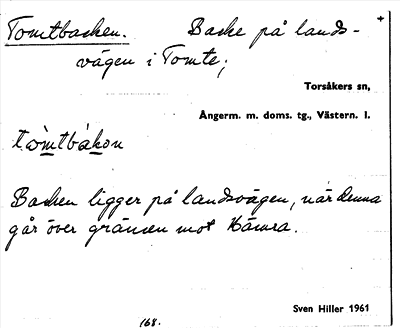 Tomtbacken. Backe på lands-
vägen i Tomte;
Torsåkers sn,
Ångerm. m. doms. tg., Västern. l.
tòmtbàkɷn
Backen ligger på landsvägen, när denna
går över gränsen mot Hämra.
168.
Sven Hiller 1961